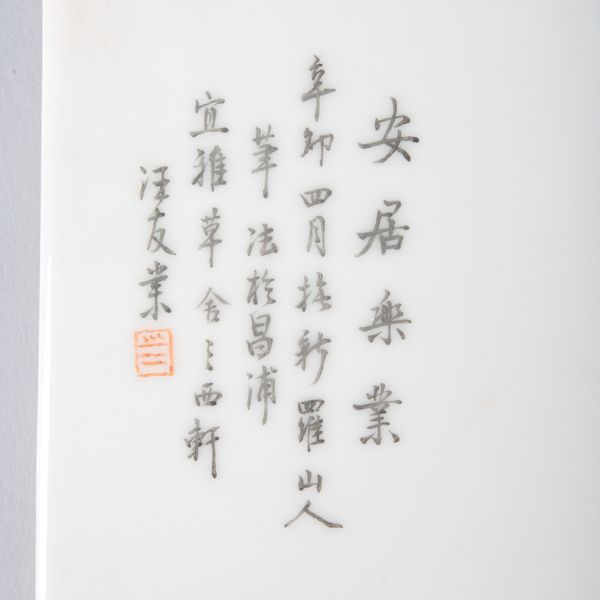 安居樂業
辛卯四月橅新羅山人
筆法於昌浦
宜雅草舍之西軒
汪友業